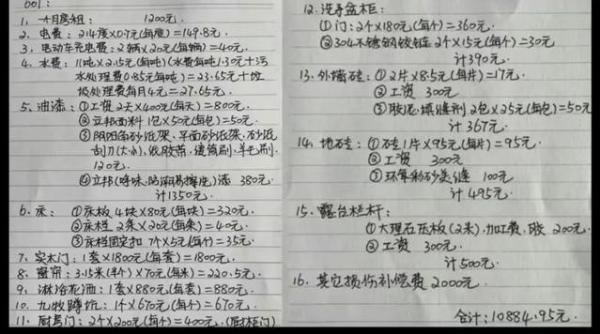 001:
1. 一个月房租: 1200元.
2. 电费: 214度×0.7元(每度)=149.8元.
3. 电动车充电费: 2辆×20元(每辆)=40元.
4. 水费: 11吨×2.15元(每吨)(水费每吨1.30元+污
水处理费0.85元每吨)=23.65元+垃
圾处理费每月4元=27.65元.
5. 油漆: ①工资2天×400元(每天)=800元.
②立邦面料1包×50元(每包)=50元
③阴阳角砂纸架、平面砂纸架、砂纸
刮刀(大小)、胶带、建筑刷、羊毛刷.
120元.
④立邦(净味、防潮易擦洗)漆 380元.
计1350元.
6. 床: ①床板4块×80元(每块)=320元.
②床栏 2条×20元(每条)=40元.
③床栏固定扣 7个×5元(每个)=35元.
7. 实木门: 1套×1800元(每套)=1800元.
8. 窗帘: 3.15米×70元(每米)=220.5元.
9. 淋浴花洒: 1套×880元(每套)=880元.
10. 九牧蹲坑: 1个×670元(每个)=670元.
11. 厨房门: 2个×200元(每个)=400元. (厨柜门)
12. 洗手盆柜:
①门: 2个×180元(每个)=360元.
②304不锈钢铰链 2个×15元(每个)=30元
计390元.
13. 外墙砖: ①2片×8.5元(每片)=17元.
②工资 300元
③胶泥、填缝剂 2包×25元(每包)=50元
计367元.
14. 地砖: ①砖1片×95元(每片)=95元.
②工资 300元
③环氧彩砂美缝 100元
计495元.
15. 露台栏杆:
①大理石压板(2米)、加工费、胶 200元.
②工资 300元.
计500元.
16. 其它损伤补偿费 2000元.
合计: 10884.95元.